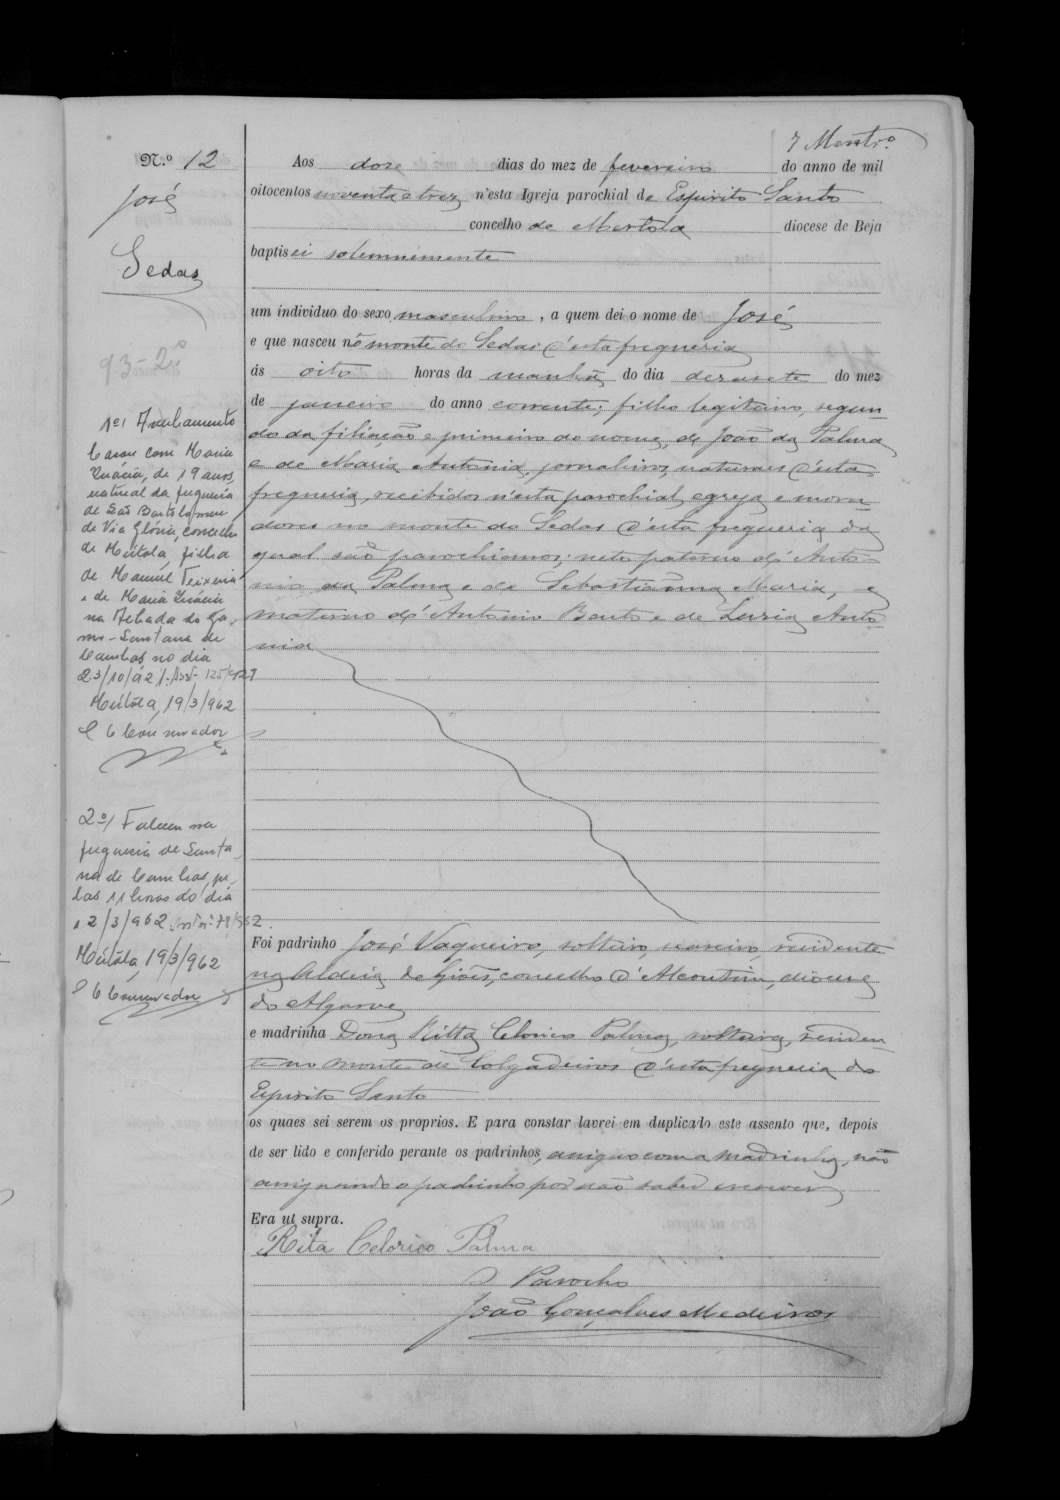 7 Montr.º
N.º 12
José
Sedas
Aos dose dias do mez de fevereiro do anno de mil
oitocentos noventa e trez n'esta Igreja parochial de Espirito Santo
concelho de Mertola diocese de Beja
baptisei solemnemente
um individuo do sexo masculino, a quem dei o nome de José
e que nasceu no monte de Sedas d'esta freguesia
ás oito horas da manhã do dia desasete do mez
de janeiro do anno corrente; filho legitimo, segun-
do da filiação e primeiro do nome, de João da Palma
e de Maria Antonia, jornaleiros, naturaes d'esta
freguesia, recebidos n'esta parochial egreja e mora-
dores no monte de Sedas d'esta freguesia da
qual são parochianos; neto paterno d'Anto-
nio da Palma e de Sebastianna Maria, e
materno d'Antonio Bento e de Luzia Anto-
nia
Foi padrinho José Vaqueiro, solteiro, residente
na Aldeia de Giões, concelho d'Alcoutim, diocese
do Algarve
e madrinha Dona Ritta Celorico Palma, solteira, residen-
te no monte de Colgadeiros d'esta freguesia do
Espirito Santo
os quaes sei serem os proprios. E para constar lavrei em duplicado este assento que, depois
de ser lido e conferido perante os padrinhos, assigno com a madrinha, não
assignando o padrinho por não saber escrever
Era ut supra.
Rita Celorico Palma
O Parocho
João Gonçalves Medeiros
93-2º
1º/ Averbamento
Casou com Maria
Inácia, de 19 anos,
natural da freguesia
de São Bartolomeu
de Via Glória, concelho
de Mértola, filha
de Manuel Teixeira
e de Maria Inácia
na
mo - Santana de
Cambas, no dia
23/10/921.
Mértola, 19/3/962
O Conservador
2º/ Faleceu na
freguesia de Santa-
na de Cambas, pe-
las 11 horas do dia
12/3/962.
Mértola, 19/3/962
O Conservador